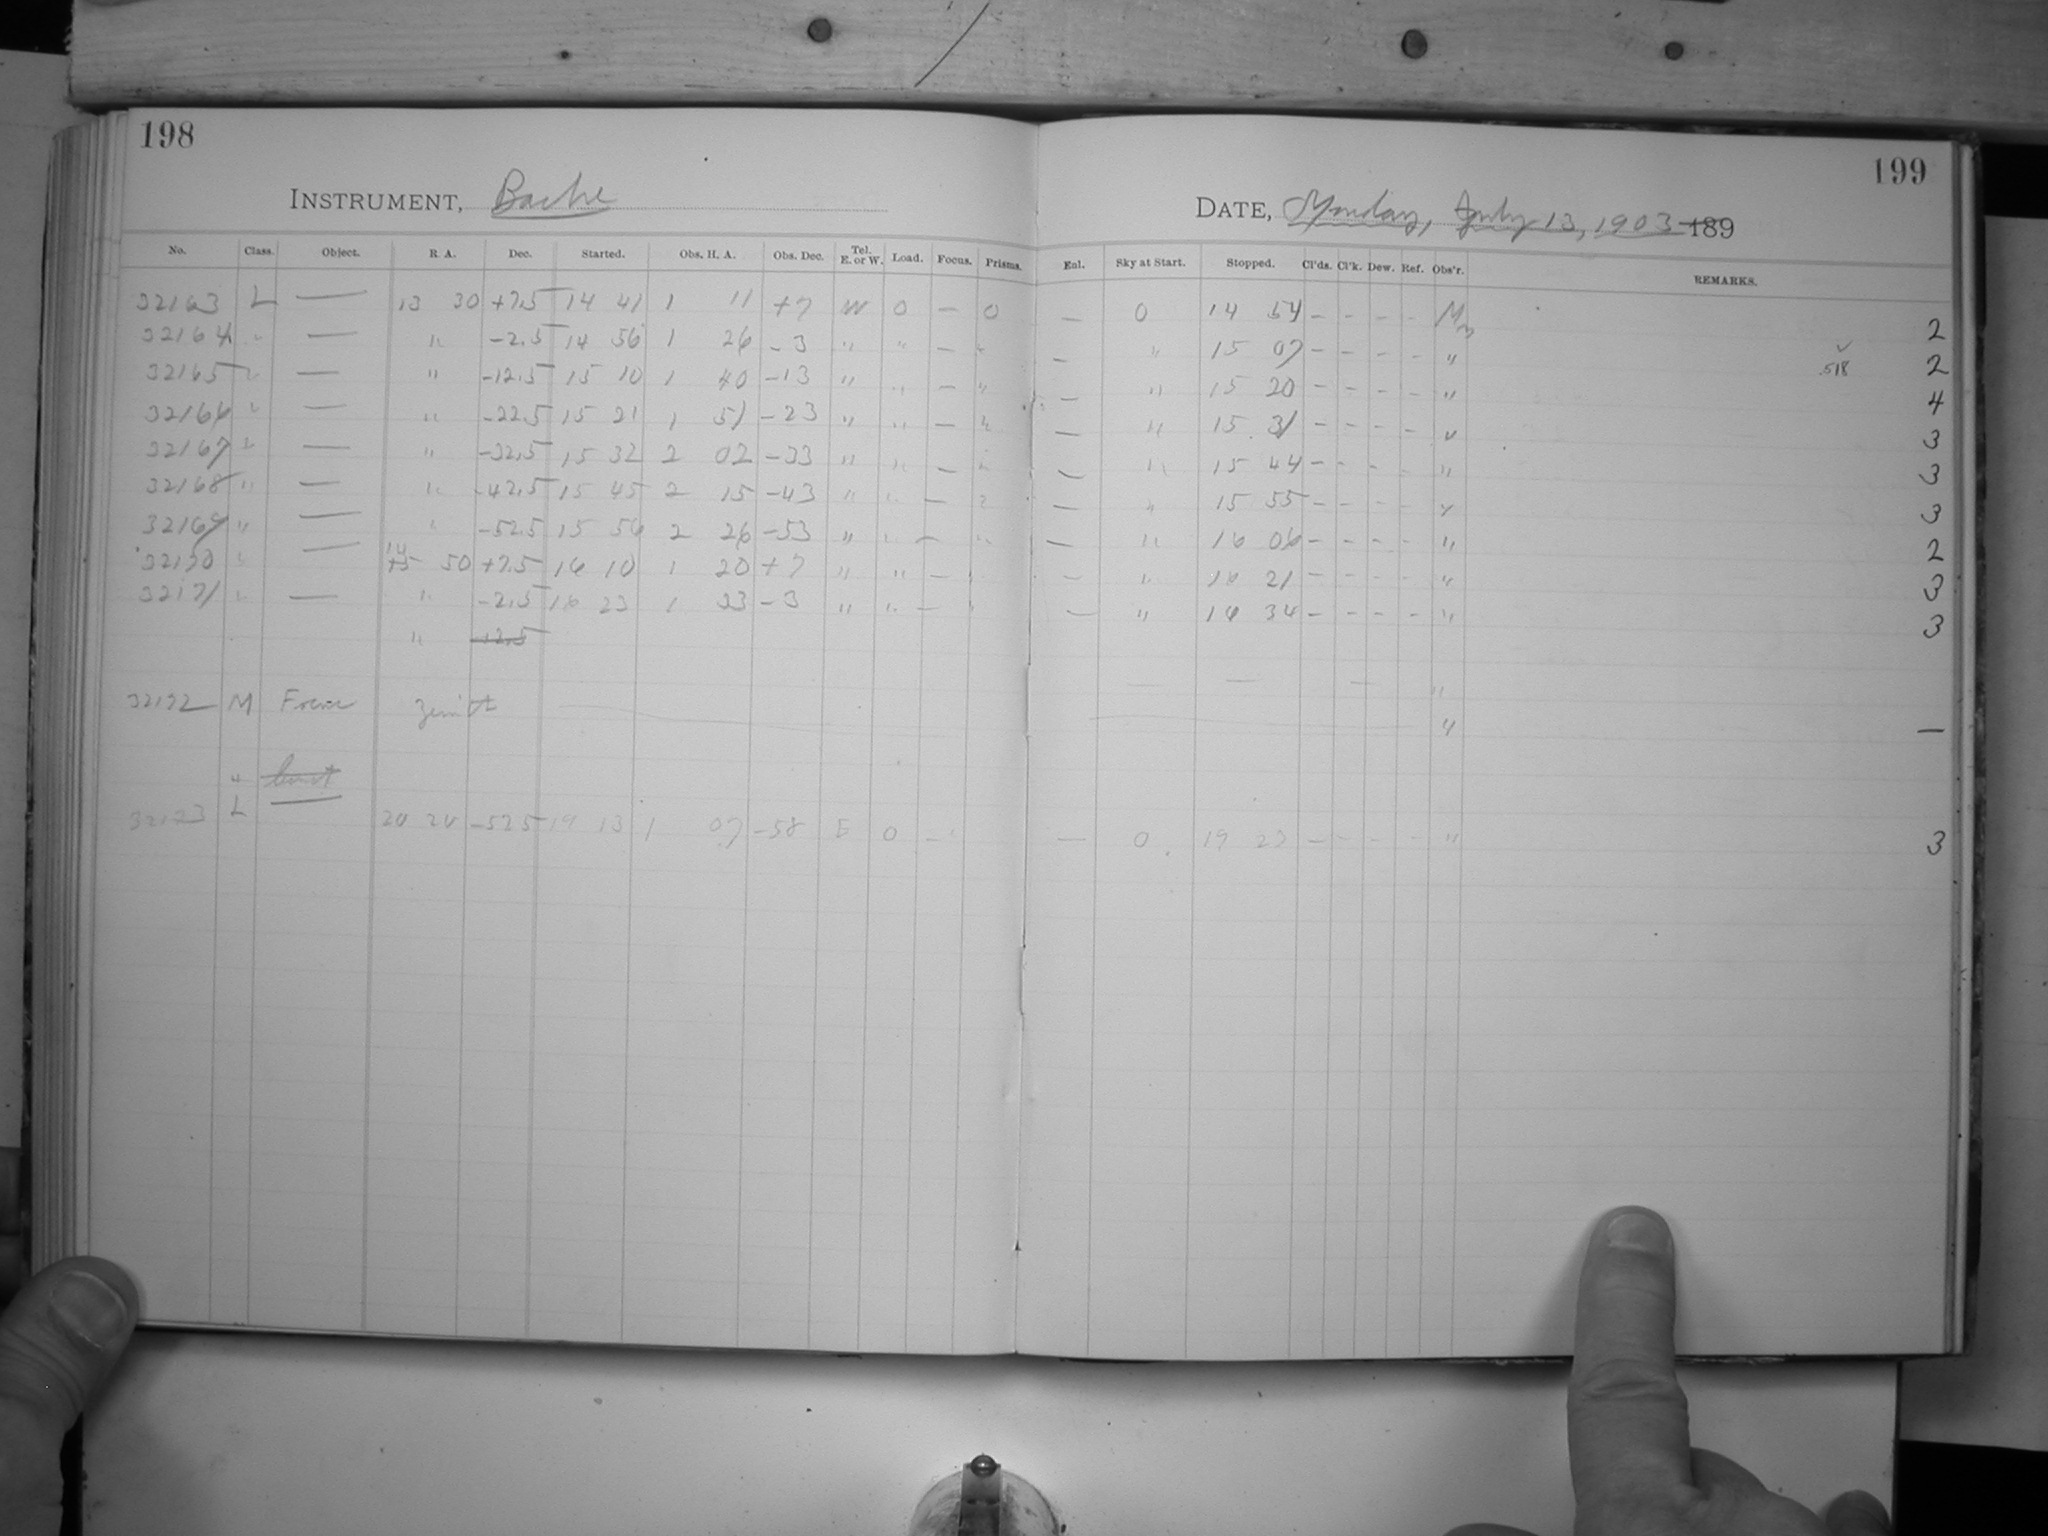 198
INSTRUMENT, Bache
No. Class. Object. R. A. Dec. Started. Obs. H. A. Obs. Dec. Tel. E. or W. Load. Focus. Prisms.
32163 L — 13 30 +7.5 14 41 1 11 +7 W 0 — 0
32164 " — " -2.5 14 56 1 26 -3 " " — "
32165 " — " -12.5 15 10 1 40 -13 " " — "
32166 " — " -22.5 15 21 1 51 -23 " " — "
32167 " — " -32.5 15 32 2 02 -33 " " — "
32168 " — " -42.5 15 45 2 15 -43 " " — "
32169 " — " -52.5 15 56 2 26 -53 " " — "
32170 " — 14 50 +7.5 16 10 1 20 +7 " " — "
32171 " — " -2.5 16 23 1 33 -3 " " — "
" -12.5
32172 M Focus Zenith
"
32173 L — 20 20 -52.5 19 13 1 07 -58 E 0 — "
199
DATE, Monday, July 13, 1903 189
Enl. Sky at Start. Stopped. Cl'ds. Cl'k. Dew. Ref. Obs'r. REMARKS.
— 0 14 54 - - - - M 2
— " 15 07 - - - - " 518 2
— " 15 20 - - - - " 4
— " 15 31 - - - - " 3
— " 15 44 - - - - " 3
— " 15 55 - - - - " 3
— " 16 06 - - - - " 2
— " 16 21 - - - - " 3
— " 16 34 - - - - " 3
— — — "
" —
— 0 19 23 - - - - " 3